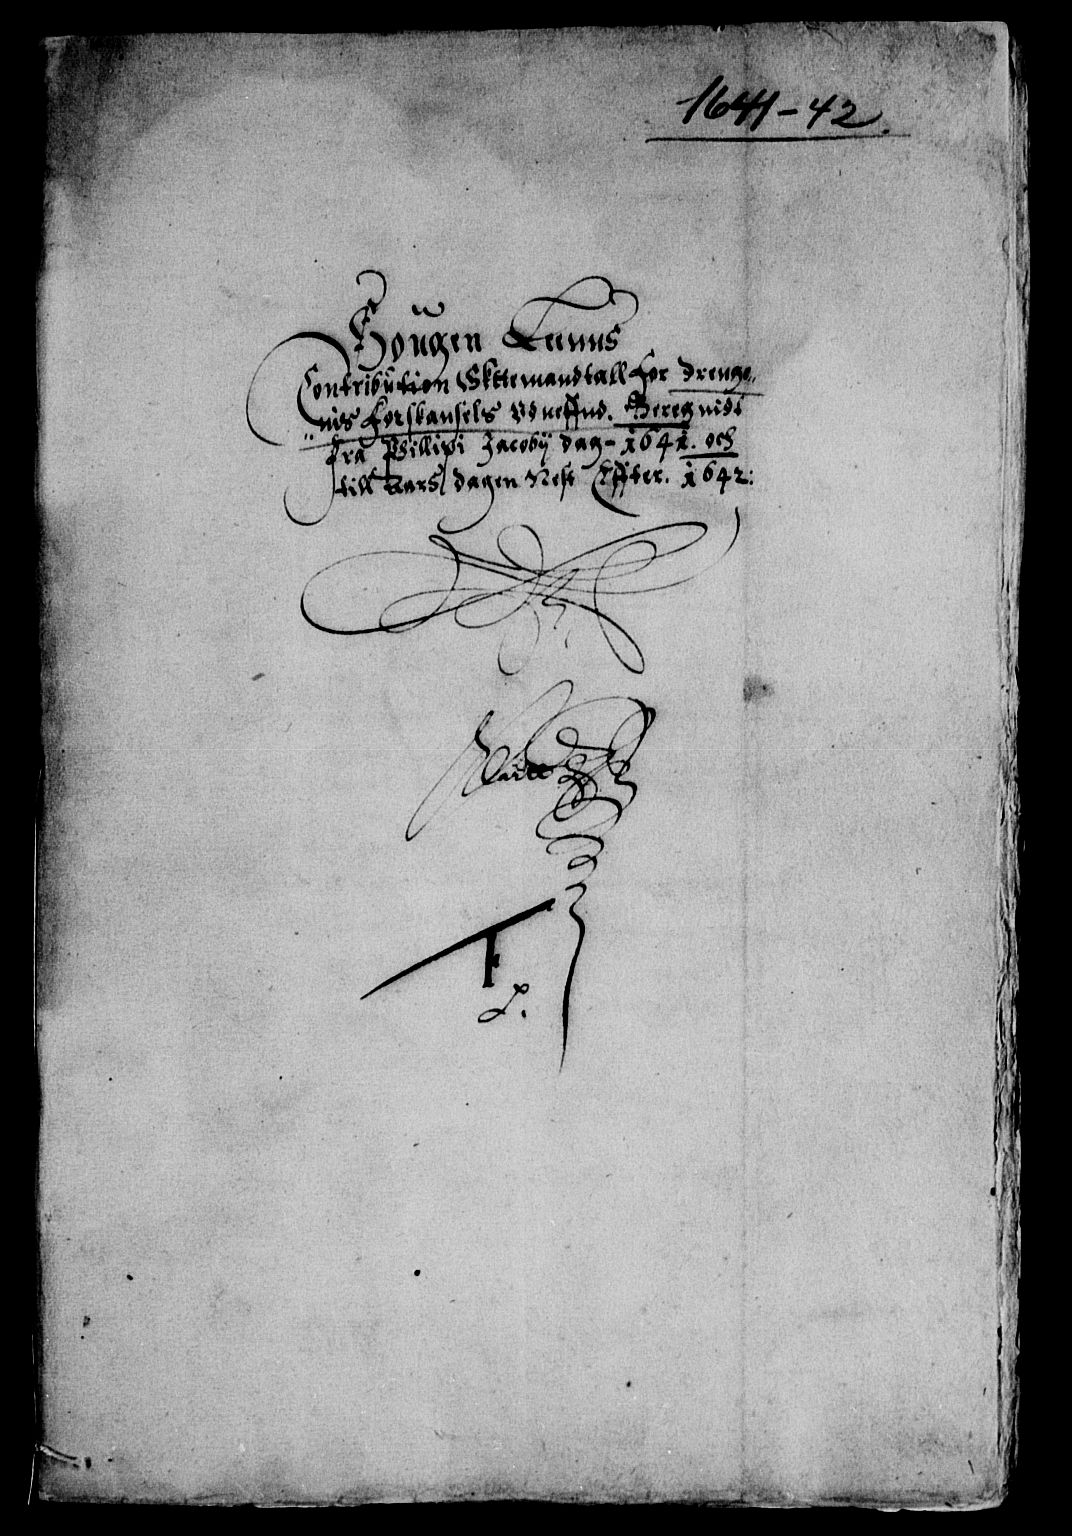 1641-42.
Hougen Leens
Contribution Skttemandtall for drenge,,
,,nis forskansels Vdneffnd. Beregnidt
fra Phillipi Jacobij dag- 1641. och
till Aars dagen Nest Effter. 1642:
L.